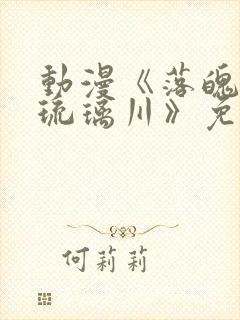 動漫《落魄
琉璃川》免
何莉莉